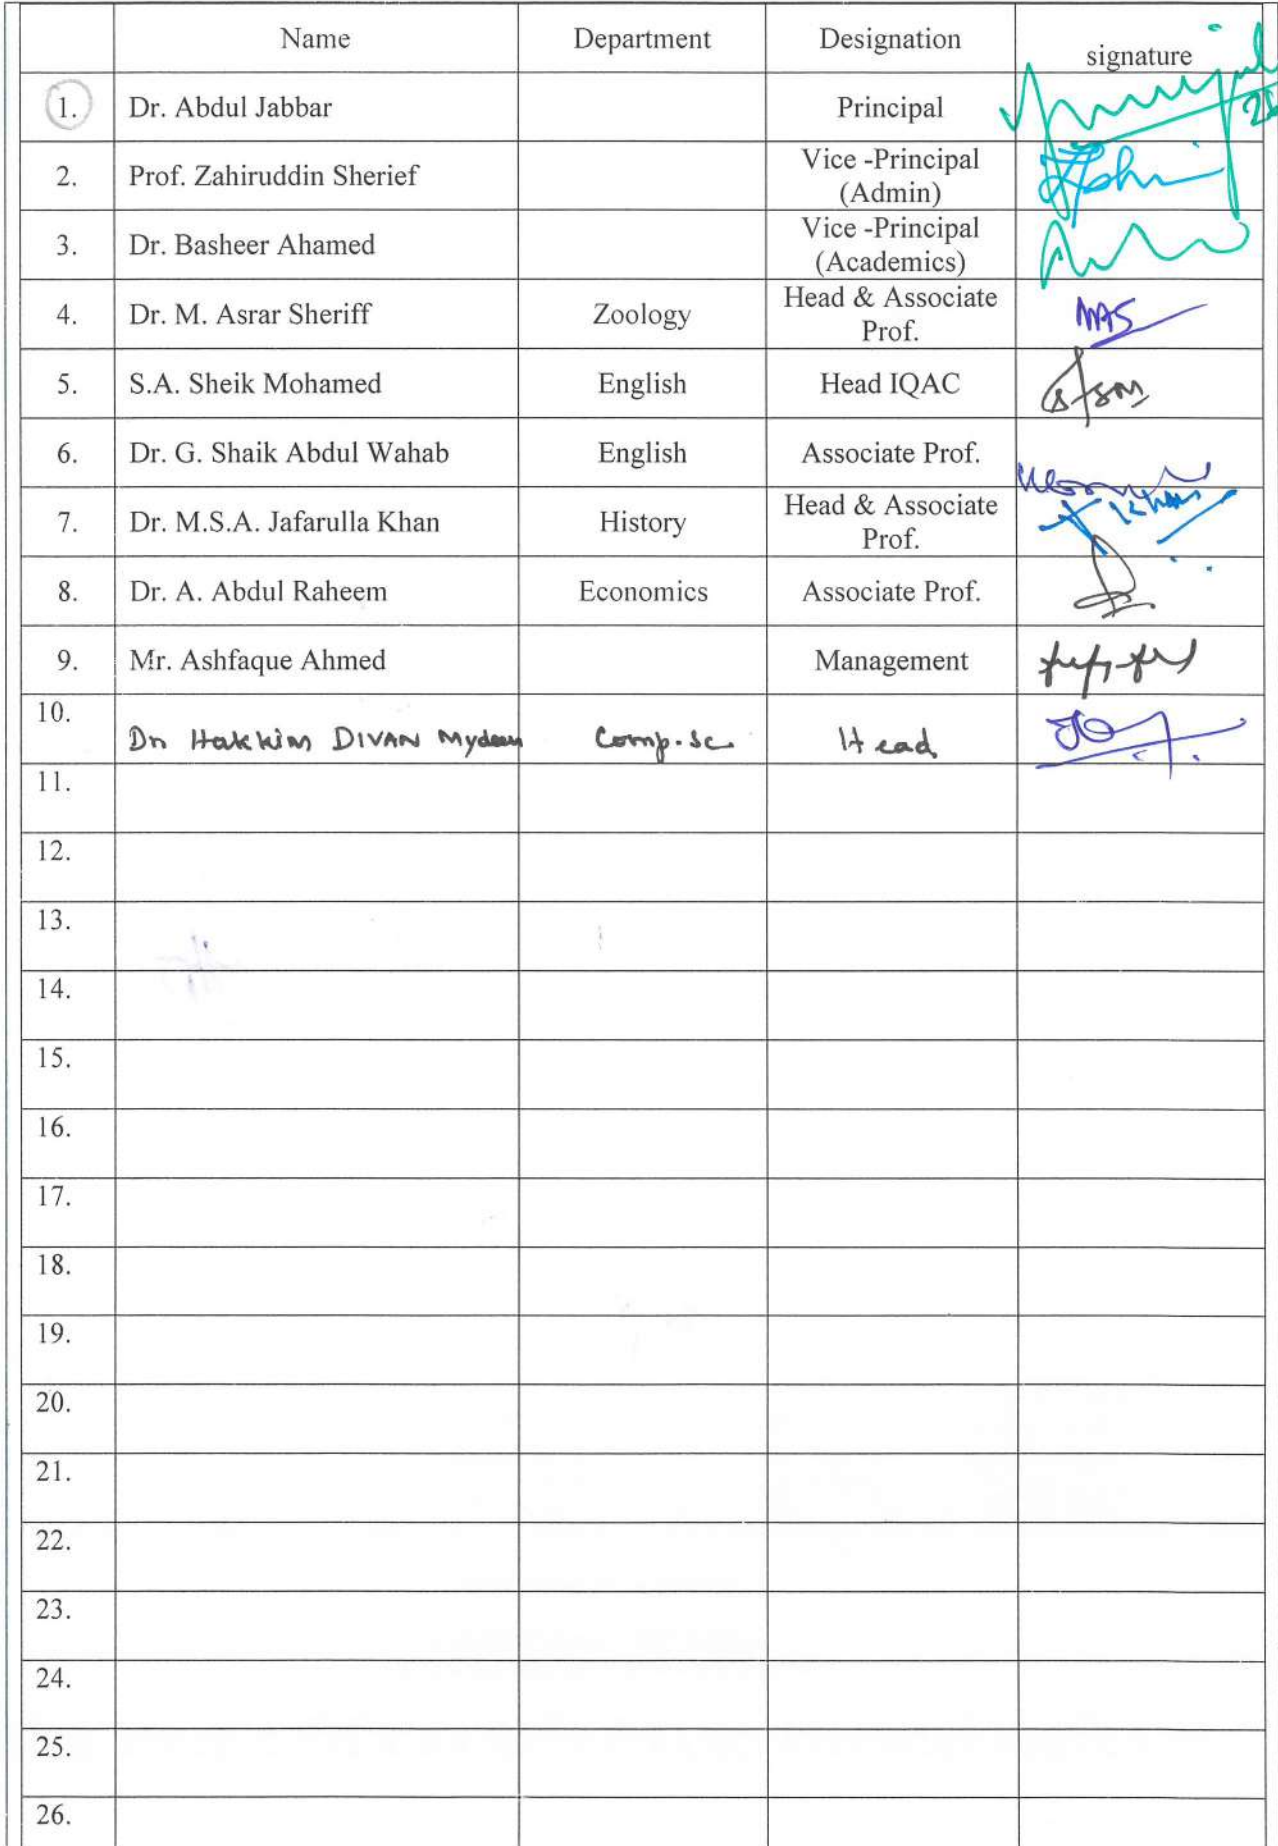 Name Department Designation signature
1. Dr. Abdul Jabbar Principal
2. Prof. Zahiruddin Sherief Vice -Principal
(Admin)
3. Dr. Basheer Ahamed Vice -Principal
(Academics)
4. Dr. M. Asrar Sheriff Zoology Head & Associate
Prof. MAS
5. S.A. Sheik Mohamed English Head IQAC
6. Dr. G. Shaik Abdul Wahab English Associate Prof.
7. Dr. M.S.A. Jafarulla Khan History Head & Associate
Prof. Khan
8. Dr. A. Abdul Raheem Economics Associate Prof.
9. Mr. Ashfaque Ahmed Management
10. Dr Hakkim DIVAN Mydeen Comp.Sc Head
11.
12.
13.
14.
15.
16.
17.
18.
19.
20.
21.
22.
23.
24.
25.
26.